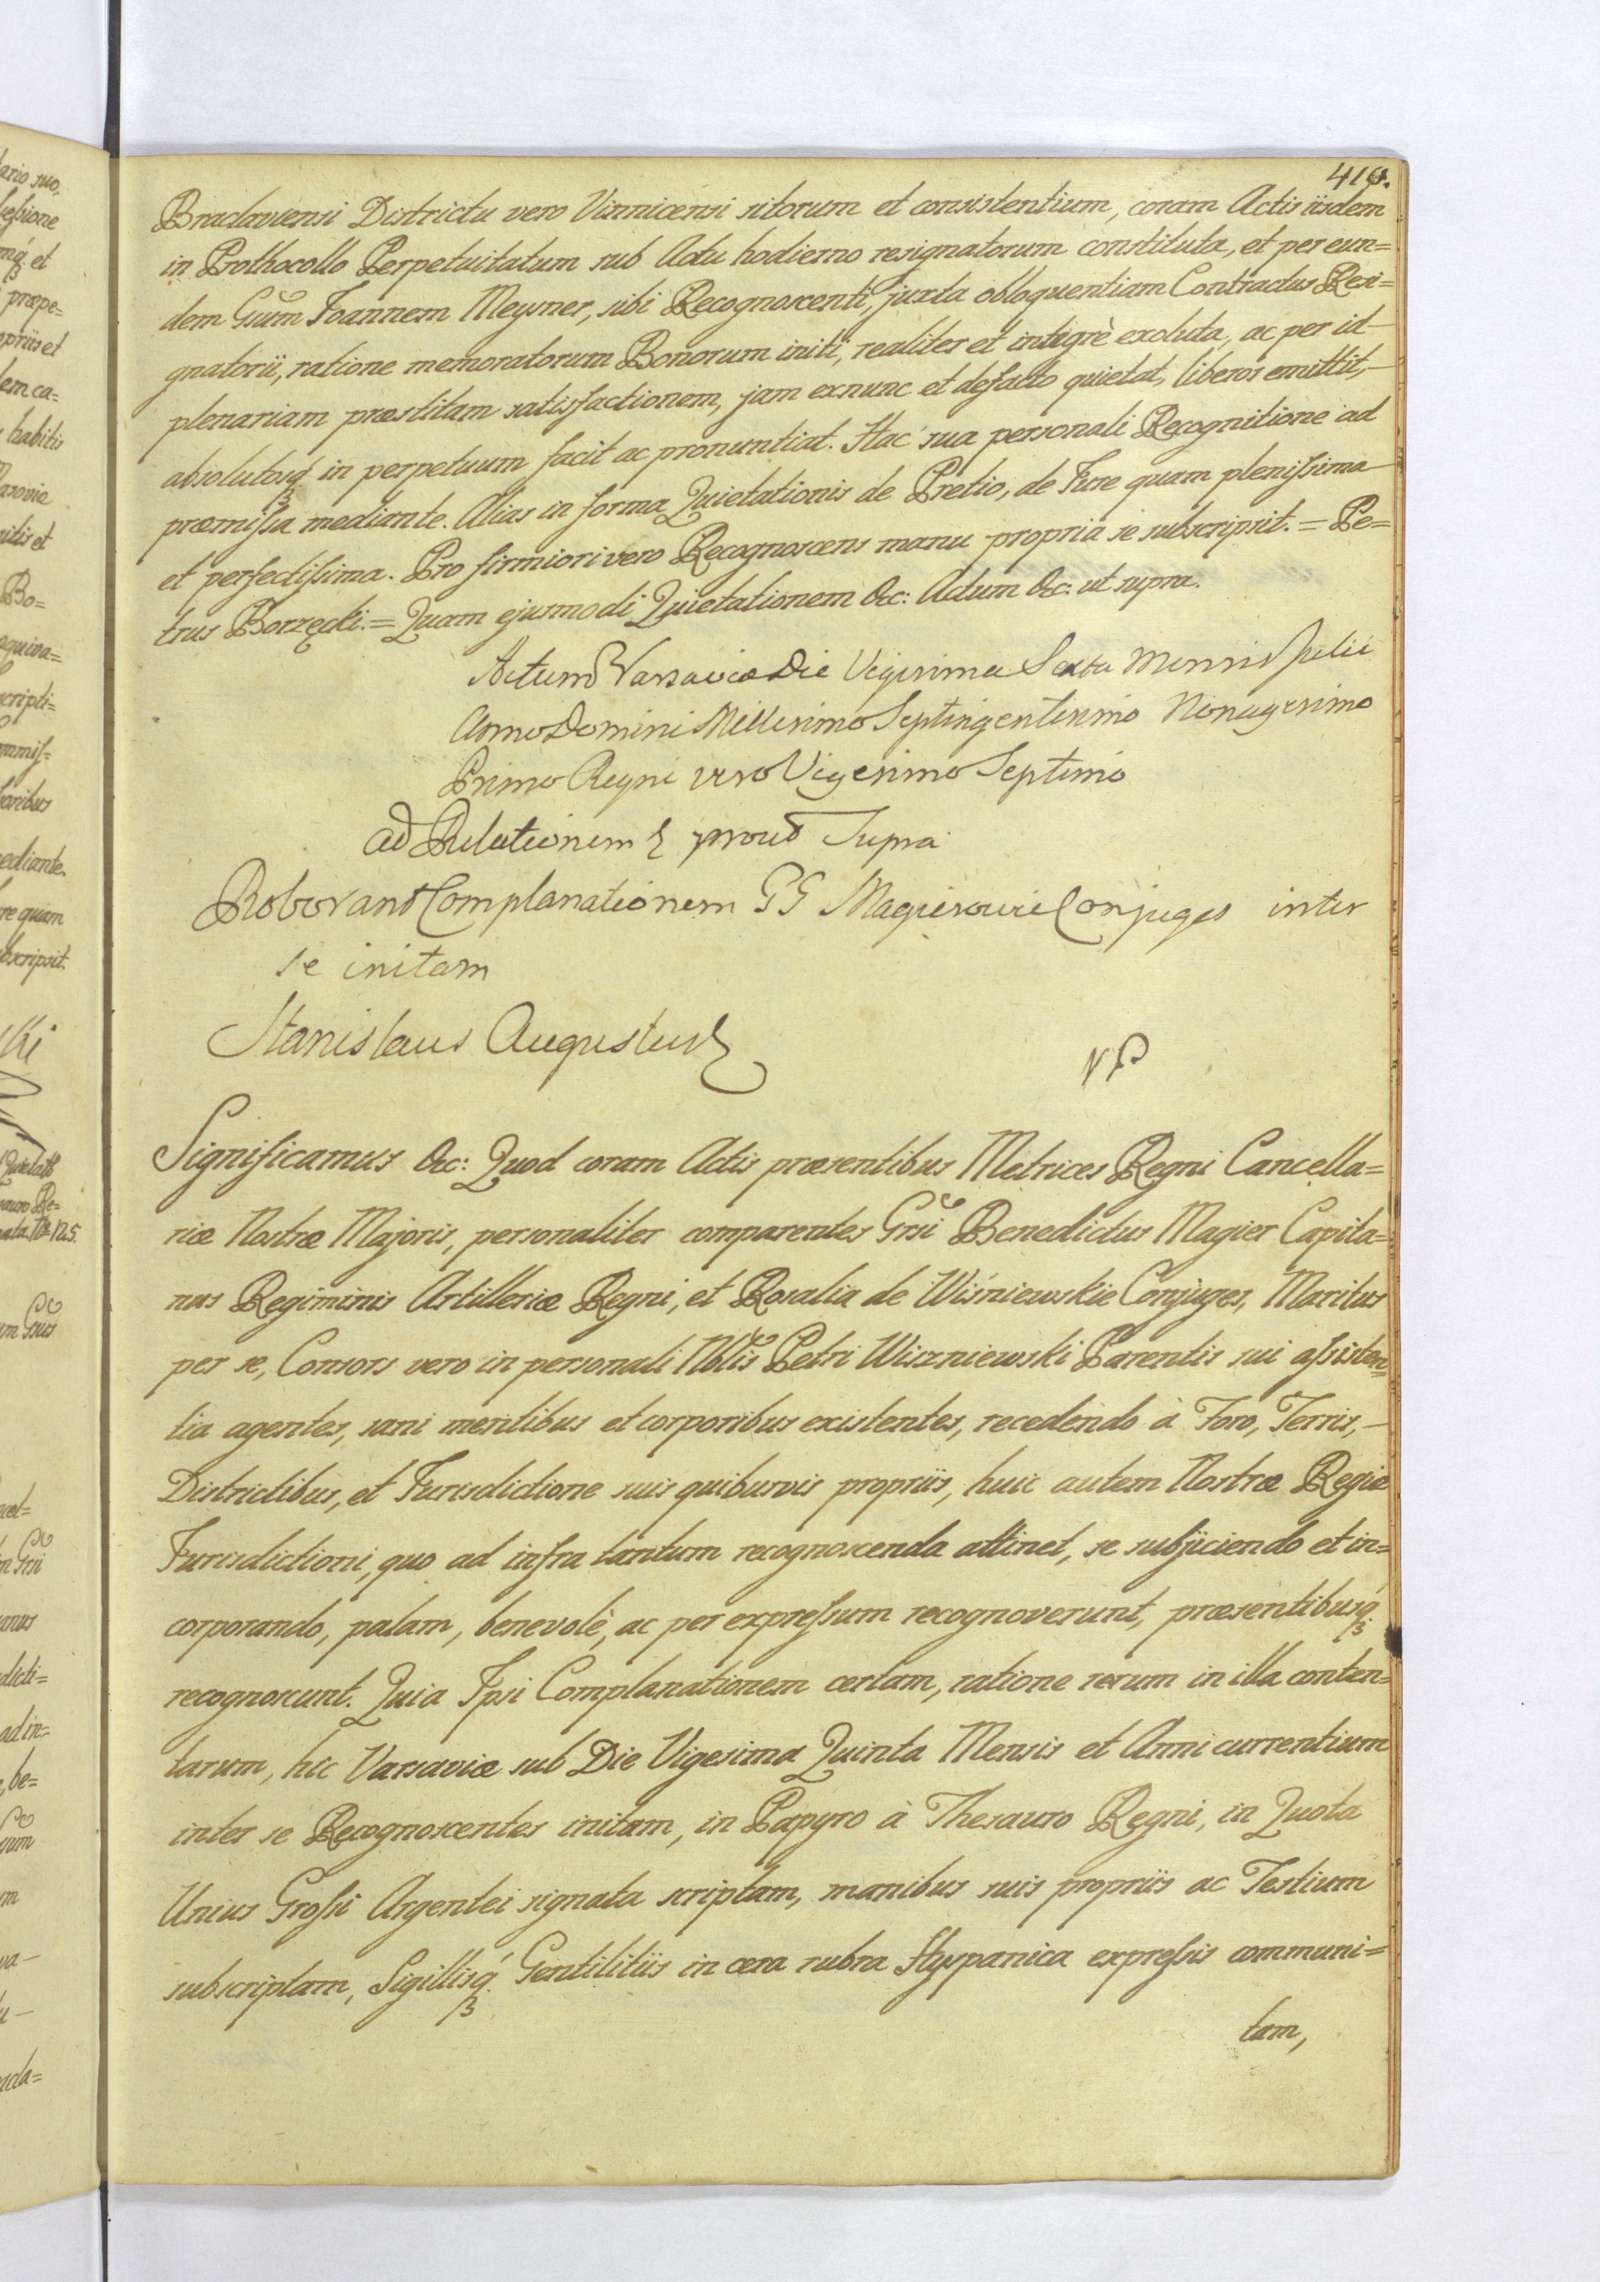 416.
Braclaviensi Districtu vero Vinnicensi sitorum et consistentium, coram Actis iisdem
in Prothocollo Perpetuitatum sub Actu hodierno resignatorum constituta, et per eun=
dem Gsum Joannem Meysner, sibi Recognoscenti, juxta obloquentiam Contractus Resi=
gnatorii, ratione memoratorum Bonorum initi, realiter et integrè exoluta, ac per id
plenariam præstitam satisfactionem, jam exnunc et defacto quietat, liberos emittit,
absolutosq in perpetuum facit ac pronuntiat. Hac sua personali Recognitione ad
præmissa mediante. Alias in forma Quietationis de Pretio, de Jure quam plenissima
et perfectissima. Pro firmiori vero Recognoscens manu propria se subscripsit. = Pe=
trus Borzęcki. = Quam ejusmodi Quietationem &c: Actum &c: ut supra.
Actum Varsaviæ Die Vigesima Sexta Mensis Julii
Anno Domini Millesimo Septingentesimo Nonagesimo
Primo Regni vero Vigesimo Septimo
ad Relationem prout Supra
Roborant Complanationem GG Magierowie Conjuges inter
se initam
Stanislaus Augustus
Significamus &c: Quod coram Actis præsentibus Metrices Regni Cancella=
riæ Nostræ Majoris, personaliter comparentes Grsi Benedictus Magier Capita=
nus Regiminis Artilleriæ Regni, et Rosalia de Wiśniewskie Conjuges, Maritus
per se, Consors vero in personali Nblis Petri Wiszniewski Parentis sui assisten=
tia agentes, sani mentibus et corporibus existentes, recedendo à Foro, Terris,
Districtibus, et Jurisdictione suis quibusvis propriis, huic autem Nostræ Regiæ
Jurisdictioni, quo ad infra tantum recognoscenda attinet, se subjiciendo et in=
corporando, palam, benevolè, ac per expressum recognoverunt, præsentibusq
recognoscunt. Quia Ipsi Complanationem certam, ratione rerum in illa conten=
tarum, hic Varsaviæ sub Die Vigesima Quinta Mensis et Anni currentium
inter se Recognoscentes initam, in Papyro à Thesauro Regni, in Quota
Unius Grossi Argentei signata scriptam, manibus suis propriis ac Testium
subscriptam, Sigillisq Gentilitiis in cera rubra Hyspanica expressis communi=
tam,